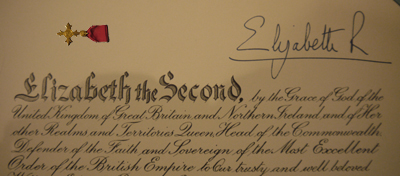 Elizabeth R
Elizabeth the Second, by the Grace of God of the
United Kingdom of Great Britain and Northern Ireland and of Her
other Realms and Territories Queen, Head of the Commonwealth,
Defender of the Faith and Sovereign of the Most Excellent
Order of the British Empire to Our trusty and well beloved